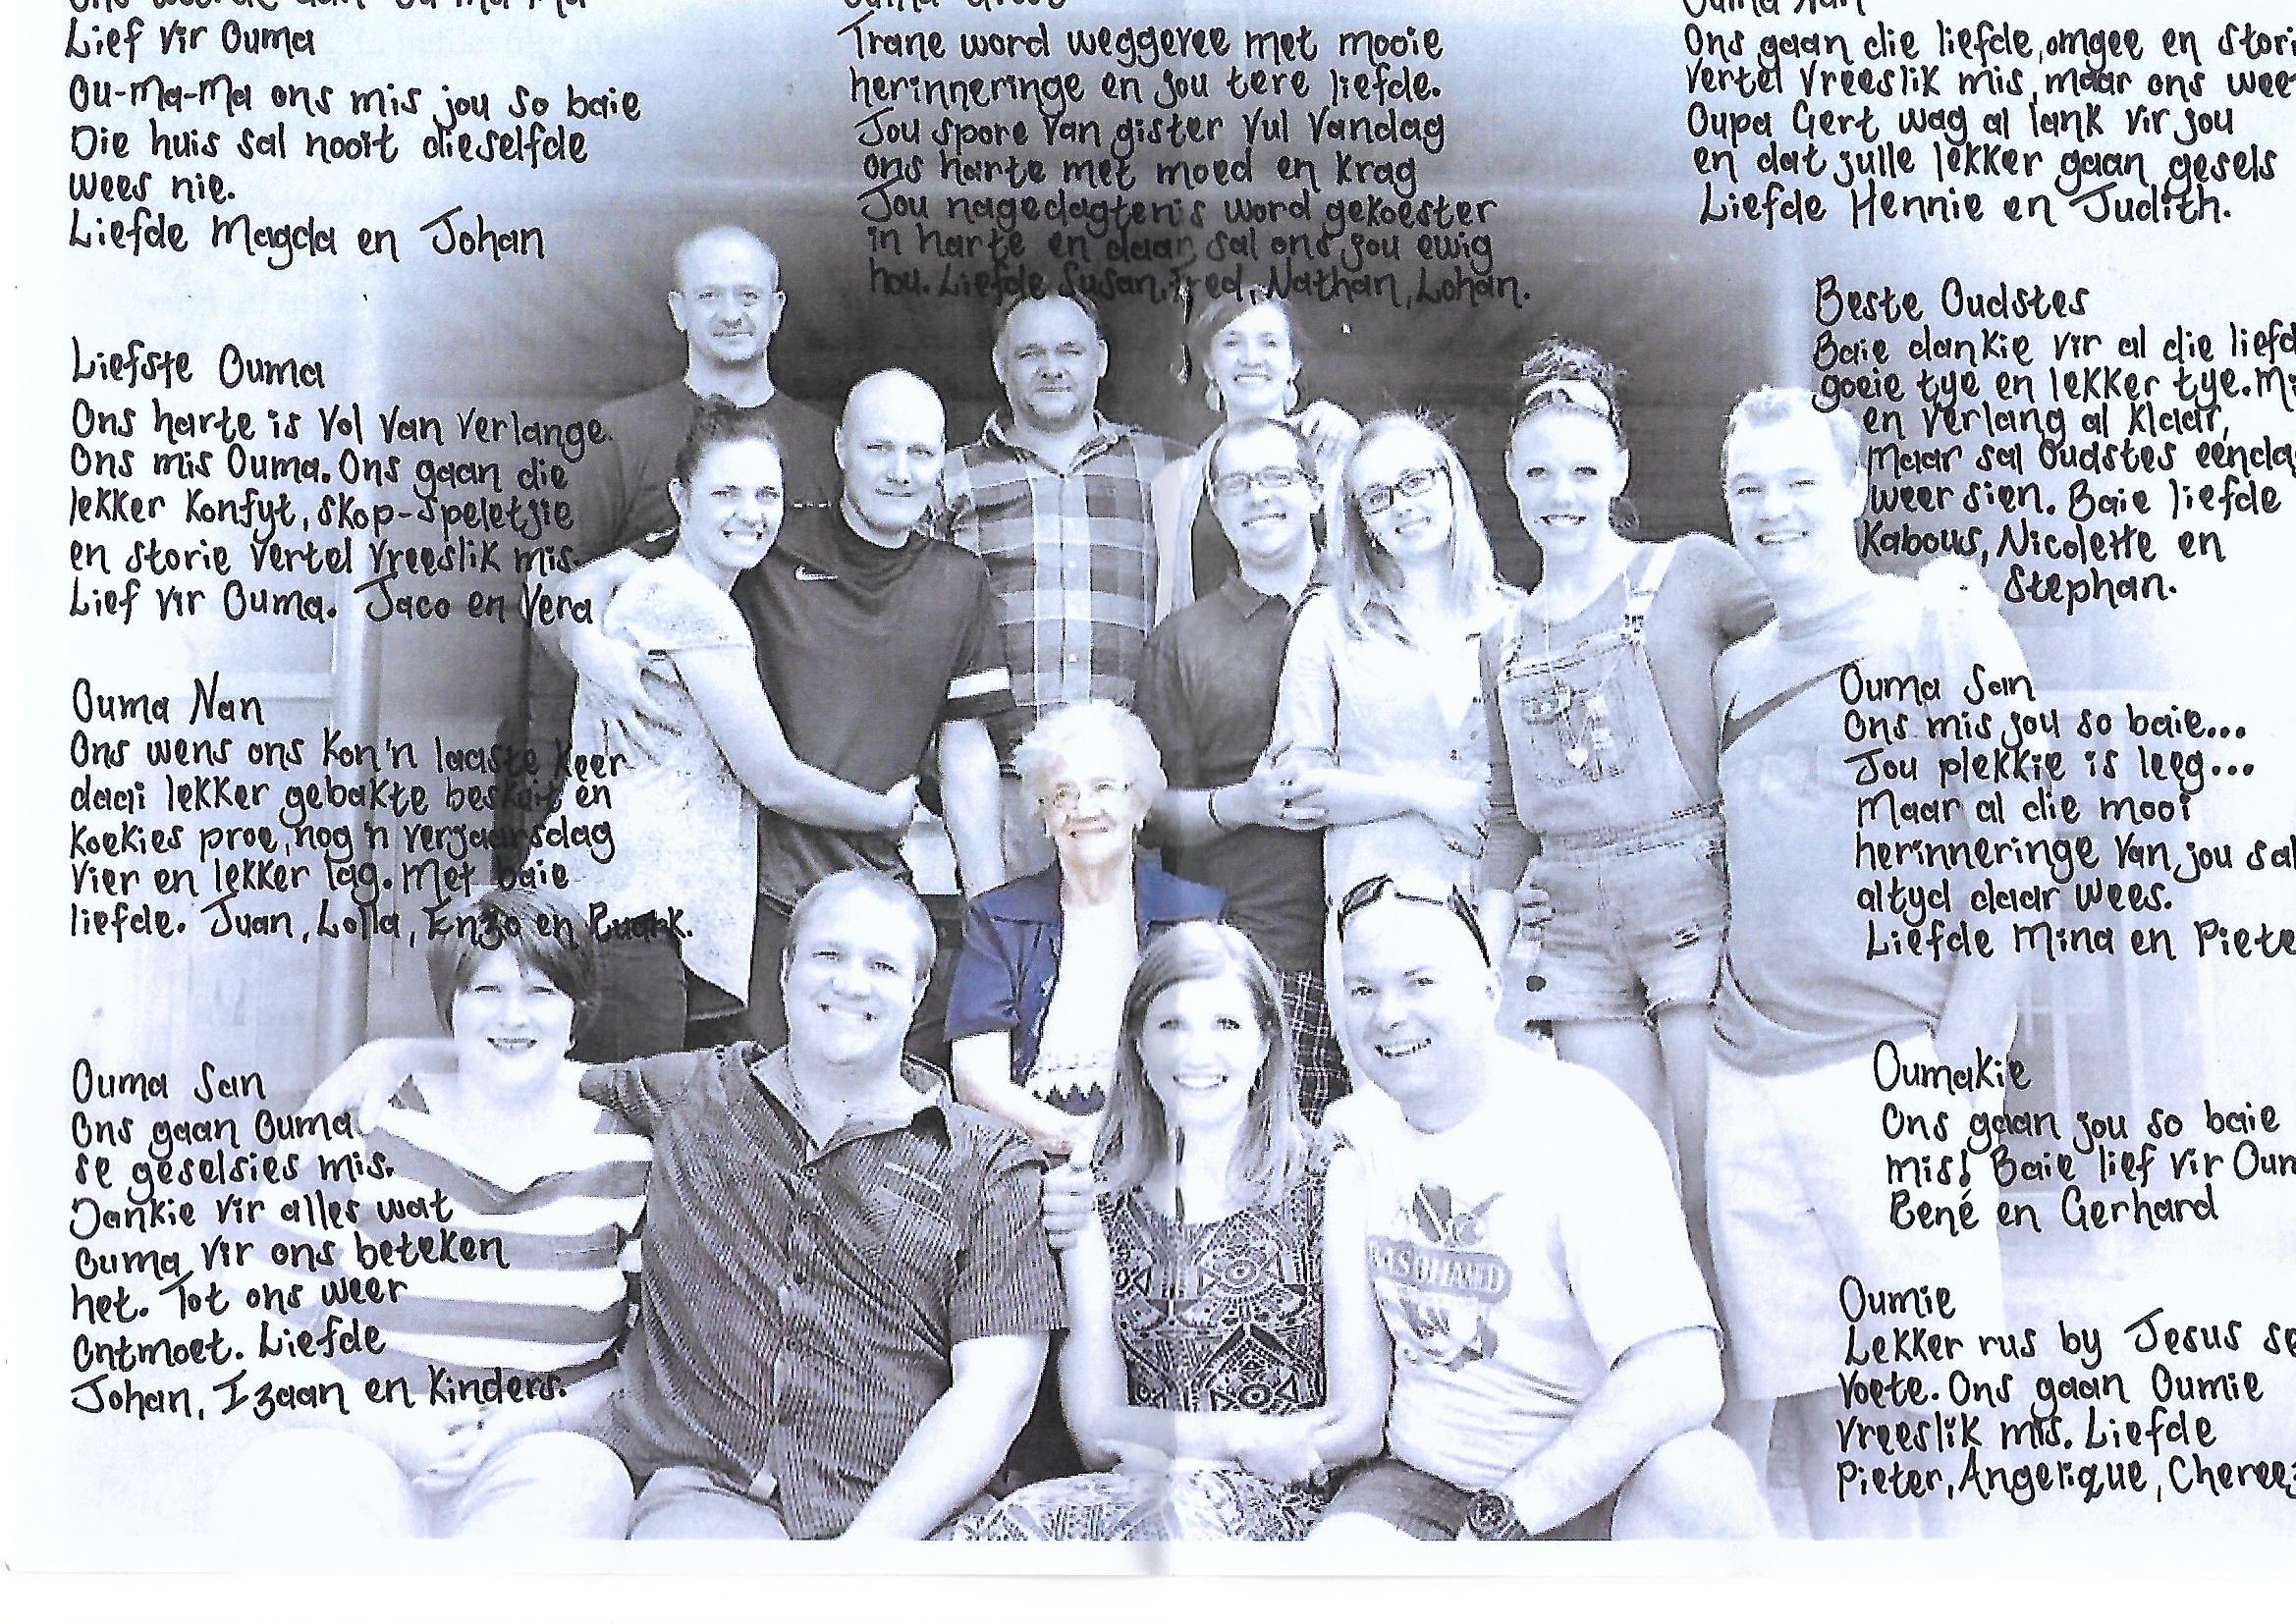 Lief vir Ouma
Ou-ma-ma ons mis jou so baie
Die huis sal nooit dieselfde
wees nie.
Liefde Magda en Johan
Liefste Ouma
Ons harte is vol van verlange.
Ons mis Ouma. Ons gaan die
lekker konfyt, skop-speletjie
en storie vertel vreeslik mis.
Lief vir Ouma. Jaco en Vera
Ouma Nan
Ons wens ons kon 'n laaste keer
daai lekker gebakte beskuit en
koekies proe, nog 'n verjaarsdag
vier en lekker lag. Met baie
liefde. Juan, Lolla, Enzo en Ruark.
Ouma San
Ons gaan Ouma
se geselsies mis.
Dankie vir alles wat
Ouma vir ons beteken
het. Tot ons weer
ontmoet. Liefde
Johan, Izaan en kinders.
Trane word weggevee met mooie
herinneringe en jou tere liefde.
Jou spore van gister vul vandag
ons harte met moed en krag
Jou nagedagtenis word gekoester
in harte en daar sal ons jou ewig
hou. Liefde Susan, Fred, Nathan, Lohan.
Ouma Nan
Ons gaan die liefde, omgee en stori
vertel vreeslik mis, maar ons wee
Oupa Gert wag al lank vir jou
en dat julle lekker gaan gesels
Liefde Hennie en Judith.
Beste Oudstes
Baie dankie vir al die liefd
goeie tye en lekker tye. Mi
en verlang al klaar,
maar sal Oudstes eenda
weer sien. Baie liefde
Kabous, Nicolette en
Stephan.
Ouma San
Ons mis jou so baie...
Jou plekkie is leeg...
Maar al die mooi
herinneringe van jou sal
altyd daar wees.
Liefde Mina en Piete
Oumakie
Ons gaan jou so baie
mis! Baie lief vir Oum
René en Gerhard
Oumie
Lekker rus by Jesus se
voete. Ons gaan Oumie
vreeslik mis. Liefde
Pieter, Angelique, Cheree